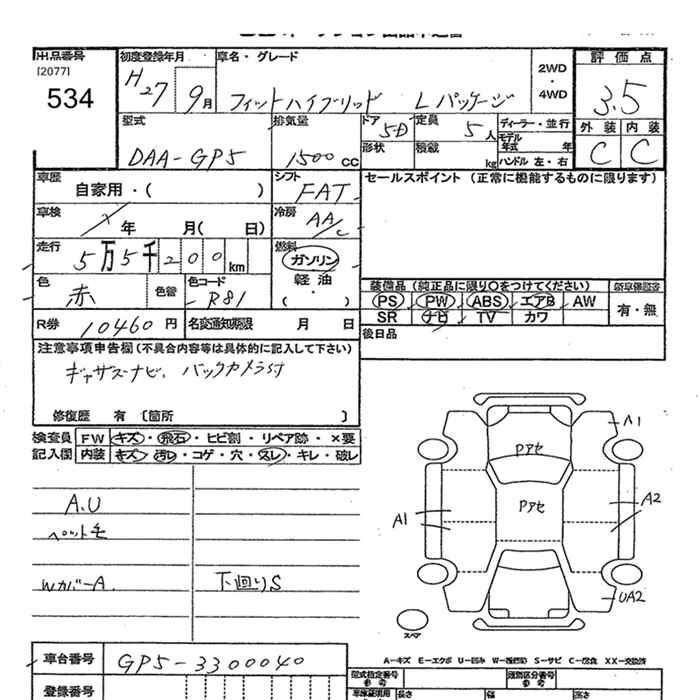 出品番号
[2077]
534
初度登録年月
H27 9月
車名・グレード
フィットハイブリッド Lパッケージ
2WD
・
4WD
評価点
3.5
外装 内装
C C
型式
DAA-GP5
排気量
1500 cc
ドア
5D
形状
定員
5人
積載
kg
ディーラー・並行
モデル年式 年
ハンドル 左・右
車歴
自家用・( )
シフト
FAT
セールスポイント (正常に機能するものに限ります)
車検
年 月( 日)
冷房
AA/C
走行
5万5千200km
燃料
ガソリン
軽油
( ・ )
色
赤
色替
色コード
R81
装備品 (純正品に限り〇をつけてください)
PS PW ABS エアB AW
SR ナビ TV カワ
新車保証書
有・無
R券 10460円
名変通知期限 月 日
後日品
注意事項申告欄(不具合内容等は具体的に記入して下さい)
ギャザズナビ、バックカメラ付
修復歴 有 〔箇所 〕
検査員記入欄
FW キズ・飛石・ヒビ割・リペア跡・×要
内装 キズ・汚レ・コゲ・穴・スレ・キレ・破レ
A.U
ペット毛
Wカバー A
下回りS
A1
Pアセ
Pアセ
A1
A2
UA2
スペア
A-キズ E-エクボ U-凹み W-補修跡 S-サビ C-腐食 XX-交換済
車台番号 GP5-3300040
登録番号
型式指定番号
参考
類別区分番号
参考
長さ
幅
高さ